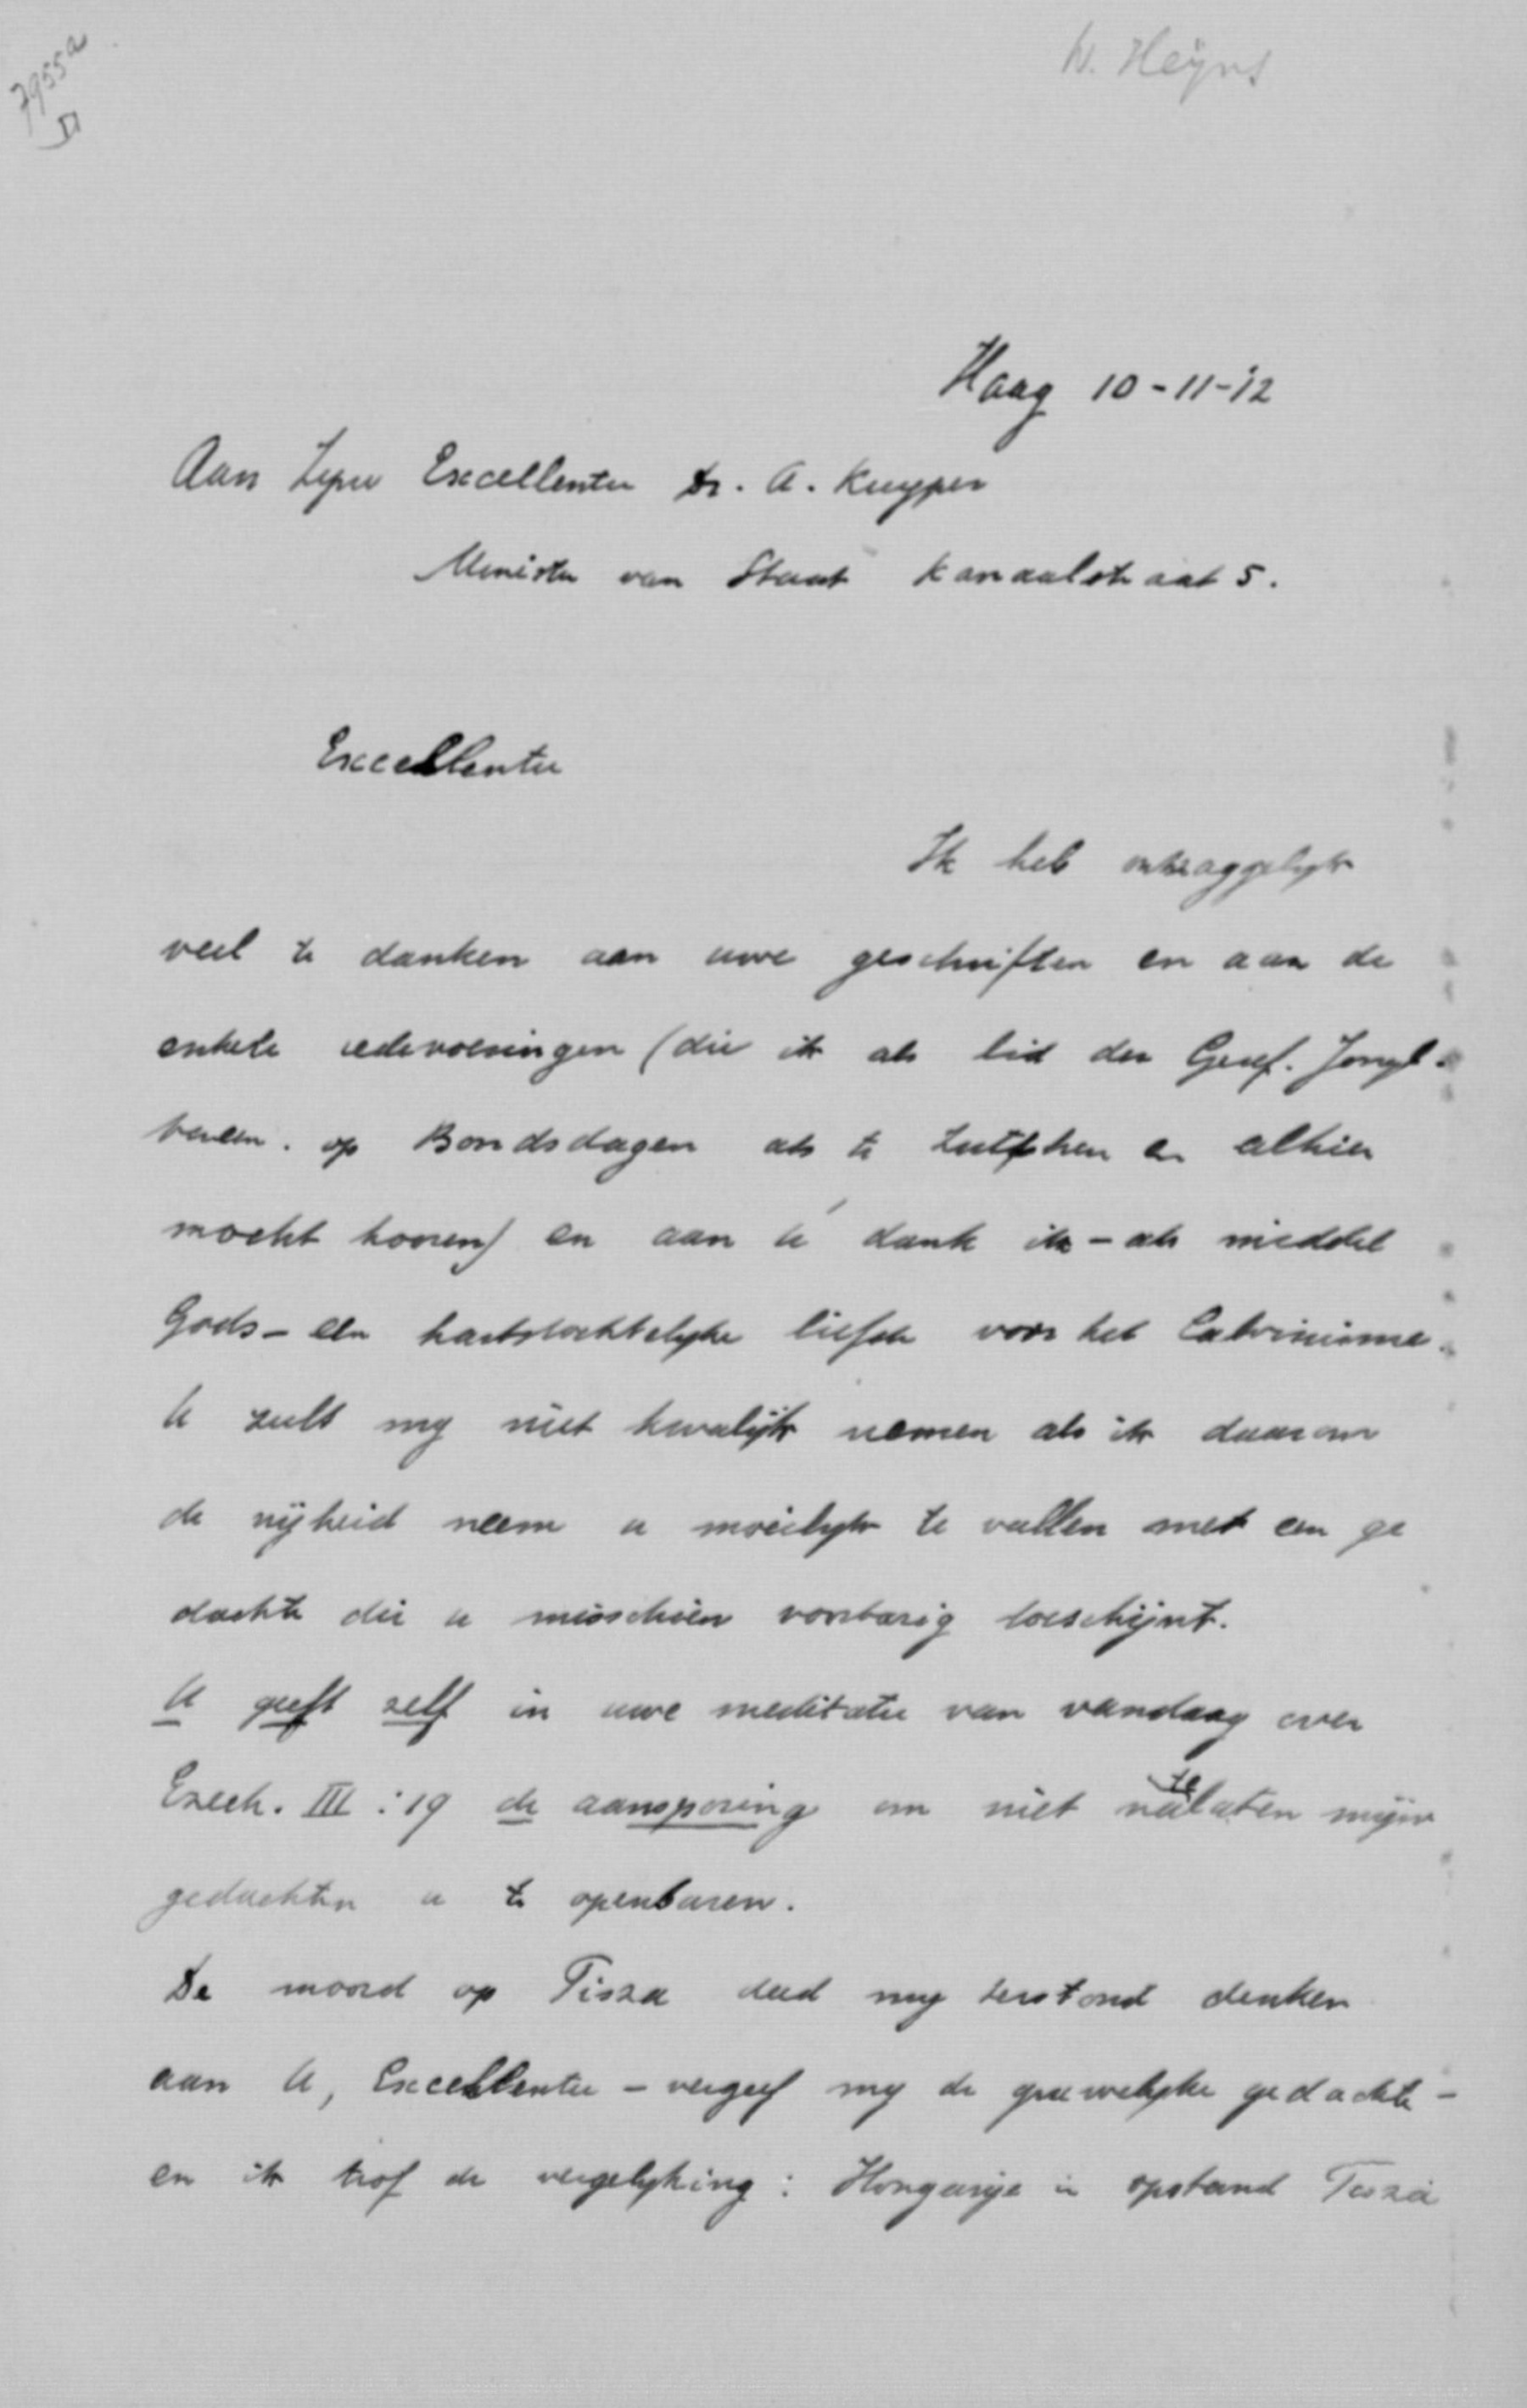 7955a
VI
W. Heijns
Haag 10-11-'12
Aan Zijne Excellentie Dr. A. Kuyper
Minister van Staat Kanaalstraat 5.
Excellentie
Ik heb ontzaggelijk
veel te danken aan uwe geschriften en aan de
enkele redevoeringen (die ik als lid der Geref. Jongl.
vereen. op Bondsdagen als te Zutphen en alhier
mocht hooren) en aan ú dank ik - als middel
Gods - een hartstochtelijke liefde voor het Calvinisme.
U zult mij niet kwalijk nemen als ik daarom
de vrijheid neem u moeilijk te vallen met een ge
dachte die u misschien voorbarig toeschijnt.
U geeft zelf in uwe meditatie van vandaag over
Ezech. III : 19 de aansporing om niet na te laten mijne
gedachten u te openbaren.
De moord op Tisza deed mij terstond denken
aan U, Excellentie - vergeef mij de gruwelijke gedachte -
en ik trof de vergelijking : Hongarije in opstand Tisza